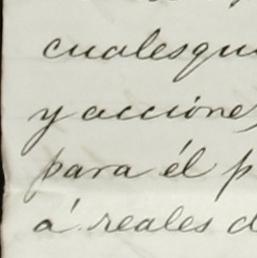 cualesqui
y acciones
para él p
á reales d